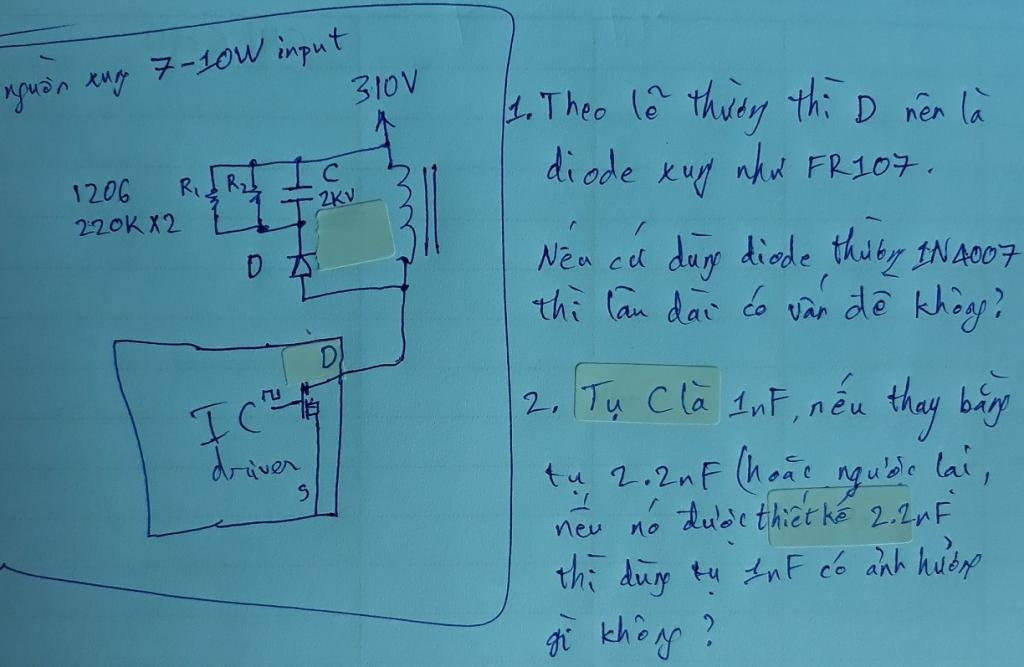 nguồn xung 7-10W input
310V
1206
220K X 2
R1
R2
C
2KV
D
D
IC
driver
S
1. Theo lẽ thường thì D nên là
diode xung như FR107.
Nếu cứ dùng diode thường 1N4007
thì lâu dài có vấn đề không?
2. Tụ C là 1nF, nếu thay bằng
tụ 2.2nF (hoặc ngược lại,
nếu nó được thiết kế 2.2nF
thì dùng tụ 1nF có ảnh hưởng
gì không?